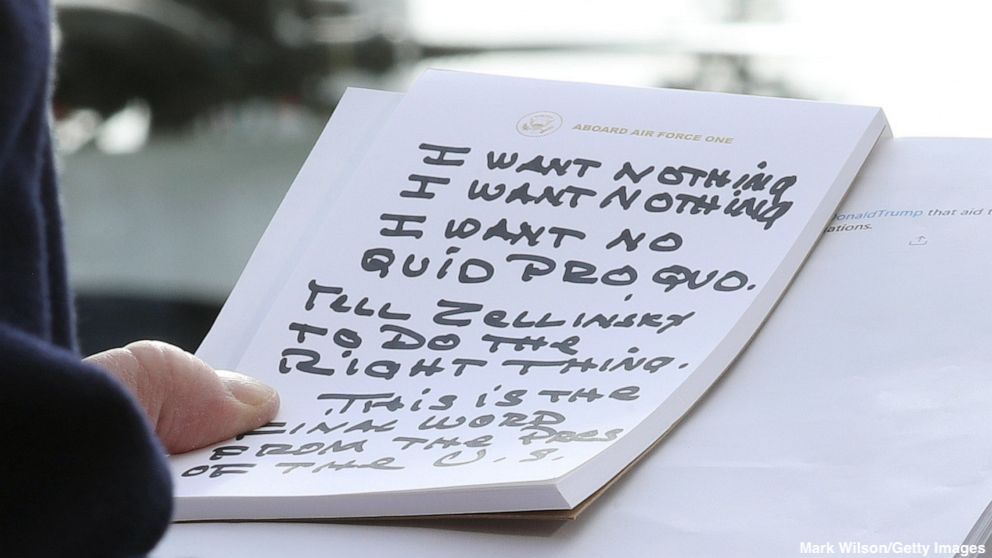 ABOARD AIR FORCE ONE
I WANT NOTHING
I WANT NOTHING
I WANT NO
QUID PRO QUO.
TELL ZELLINSKY
TO DO THE
RIGHT THING.
THIS IS THE
FINAL WORD
FROM THE PRES
OF THE U.S.
onaldTrump that aid t
ations.
Mark Wilson/Getty Images